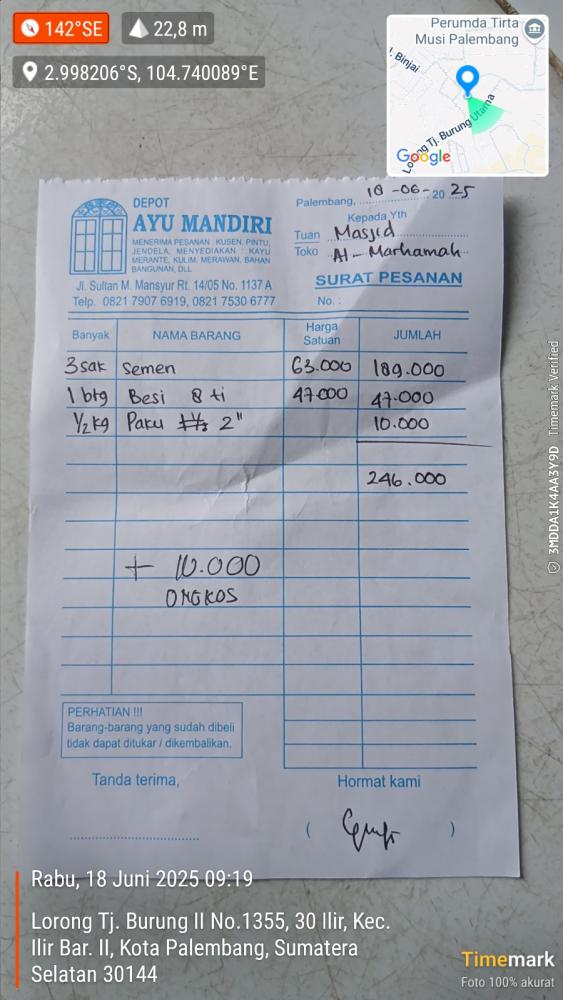 142°SE
22,8 m
2.998206°S, 104.740089°E
Perumda Tirta
Musi Palembang
J. Binjai
Lorong Tj. Burung Utama
Google
DEPOT
AYU MANDIRI
MENERIMA PESANAN : KUSEN, PINTU,
JENDELA, MENYEDIAKAN : KAYU
MERANTE, KULIM, MERAWAN, BAHAN
BANGUNAN, DLL
Jl. Sultan M. Mansyur Rt. 14/05 No. 1137 A
Telp. 0821 7907 6919, 0821 7530 6777
Palembang, 18 -06- 20 25
Kepada Yth
Tuan Masjid
Toko Al-Marhamah
SURAT PESANAN
No. :
Banyak NAMA BARANG Harga Satuan JUMLAH
3 sak Semen 63.000 189.000
1 btg Besi 8 ti 47.000 47.000
1/2 kg Paku 2" 10.000
246.000
+ 10.000
ONGKOS
PERHATIAN !!!
Barang-barang yang sudah dibeli
tidak dapat ditukar / dikembalikan.
Tanda terima,
Hormat kami
( )
Rabu, 18 Juni 2025 09:19
Lorong Tj. Burung II No.1355, 30 Ilir, Kec.
Ilir Bar. II, Kota Palembang, Sumatera
Selatan 30144
Timemark
Foto 100% akurat
3MDDA1K4AA3Y9D Timemark Verified